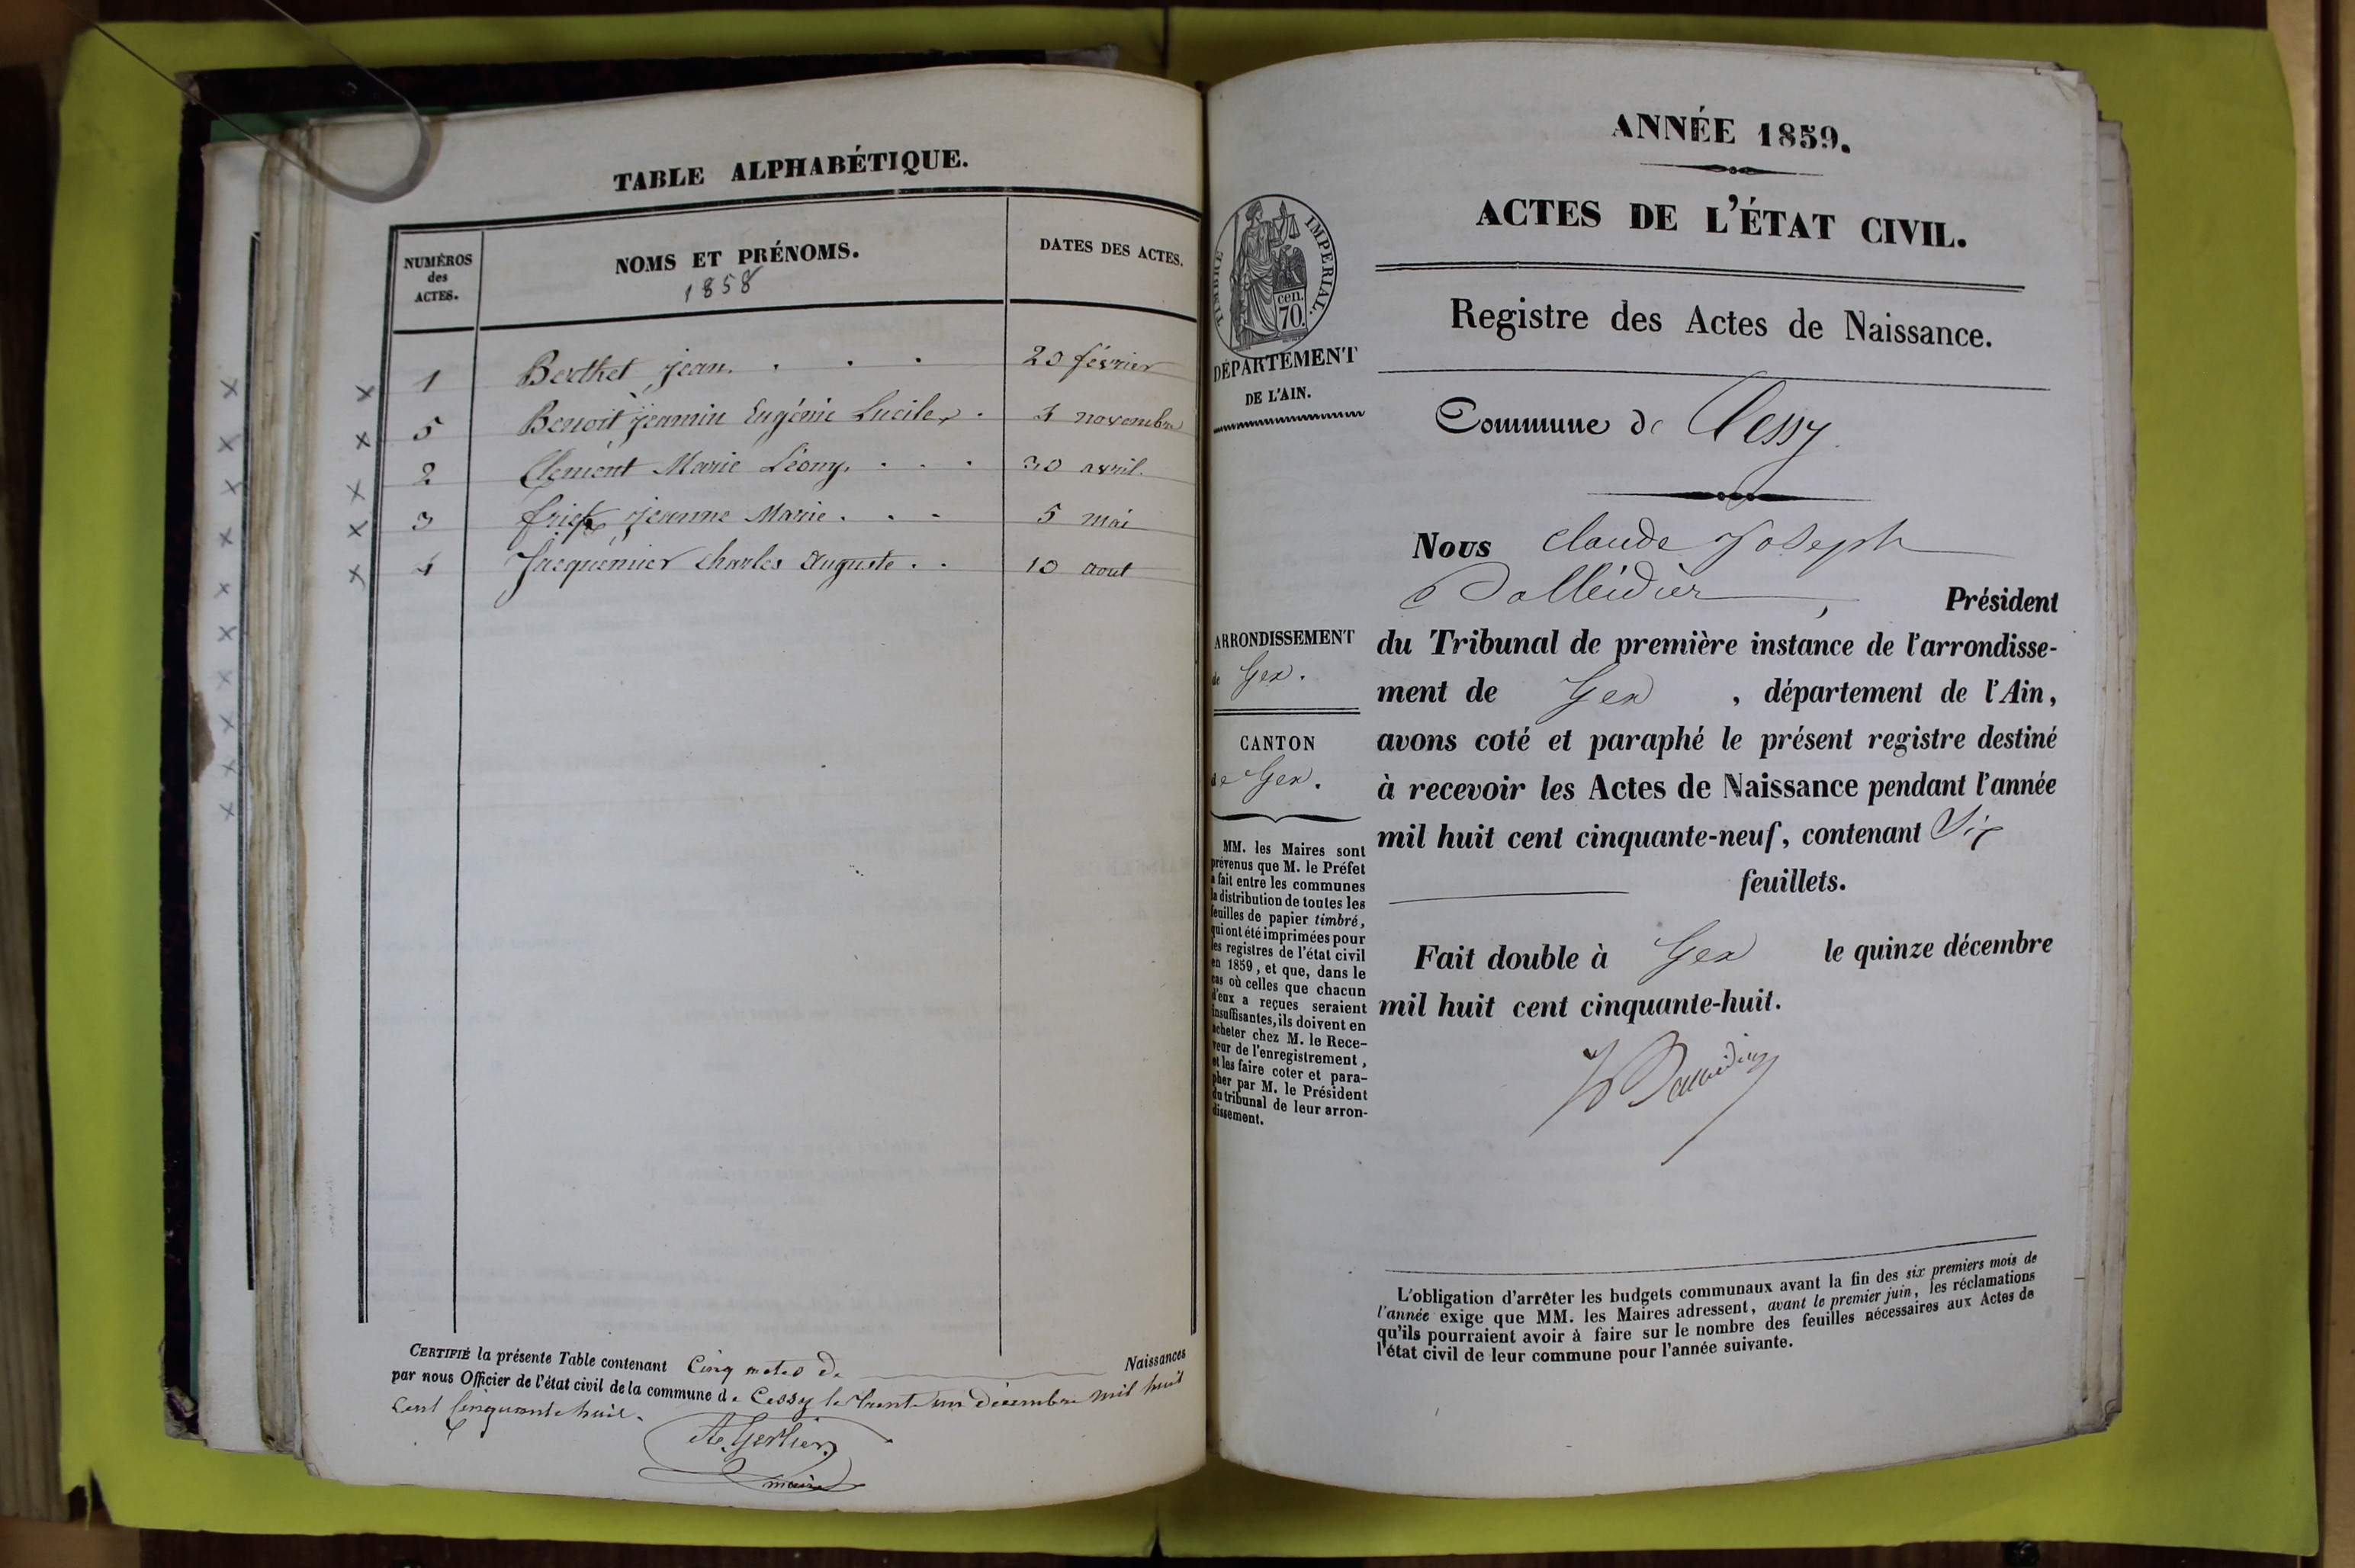 TABLE ALPHABÉTIQUE.
NUMÉROS
des
ACTES.
NOMS ET PRÉNOMS.
1858
DATES DES ACTES.
1 Berthet jean. . . . 20 février
5 Benoit jeannin Eugénie Lucile . 4 novembre
2 Clement Marie Léony. . . . 30 avril.
3 jeanne Marie . . . 5 mai
4 Jacquemier Charles Auguste . . 10 aout
CERTIFIÉ la présente Table contenant Cinq actes de Naissances
par nous Officier de l'état civil de la commune de Cessy le trente un décembre mil huit
cent cinquante huit.
Gerlier
maire
ANNÉE 1859.
ACTES DE L'ÉTAT CIVIL.
Registre des Actes de Naissance.
TIMBRE IMPERIAL.
cen.
70.
DÉPARTEMENT
DE L'AIN.
Commune de Cessy
Nous Claude Joseph
Balleidier, Président
ARRONDISSEMENT
de Gex.
CANTON
de Gex.
du Tribunal de première instance de l'arrondisse-
ment de Gex, département de l'Ain,
avons coté et paraphé le présent registre destiné
à recevoir les Actes de Naissance pendant l'année
mil huit cent cinquante-neuf, contenant Six
feuillets.
Fait double à Gex le quinze décembre
mil huit cent cinquante-huit.
MM. les Maires sont
prévenus que M. le Préfet
a fait entre les communes
la distribution de toutes les
feuilles de papier timbré,
qui ont été imprimées pour
les registres de l'état civil
en 1859, et que, dans le
cas où celles que chacun
d'eux a reçues seraient
insuffisantes, ils doivent en
acheter chez M. le Rece-
veur de l'enregistrement,
et les faire coter et para-
pher par M. le Président
du tribunal de leur arron-
dissement.
L'obligation d'arrêter les budgets communaux avant la fin des six premiers mois de
l'année exige que MM. les Maires adressent, avant le premier juin, les réclamations
qu'ils pourraient avoir à faire sur le nombre des feuilles nécessaires aux Actes de
l'état civil de leur commune pour l'année suivante.